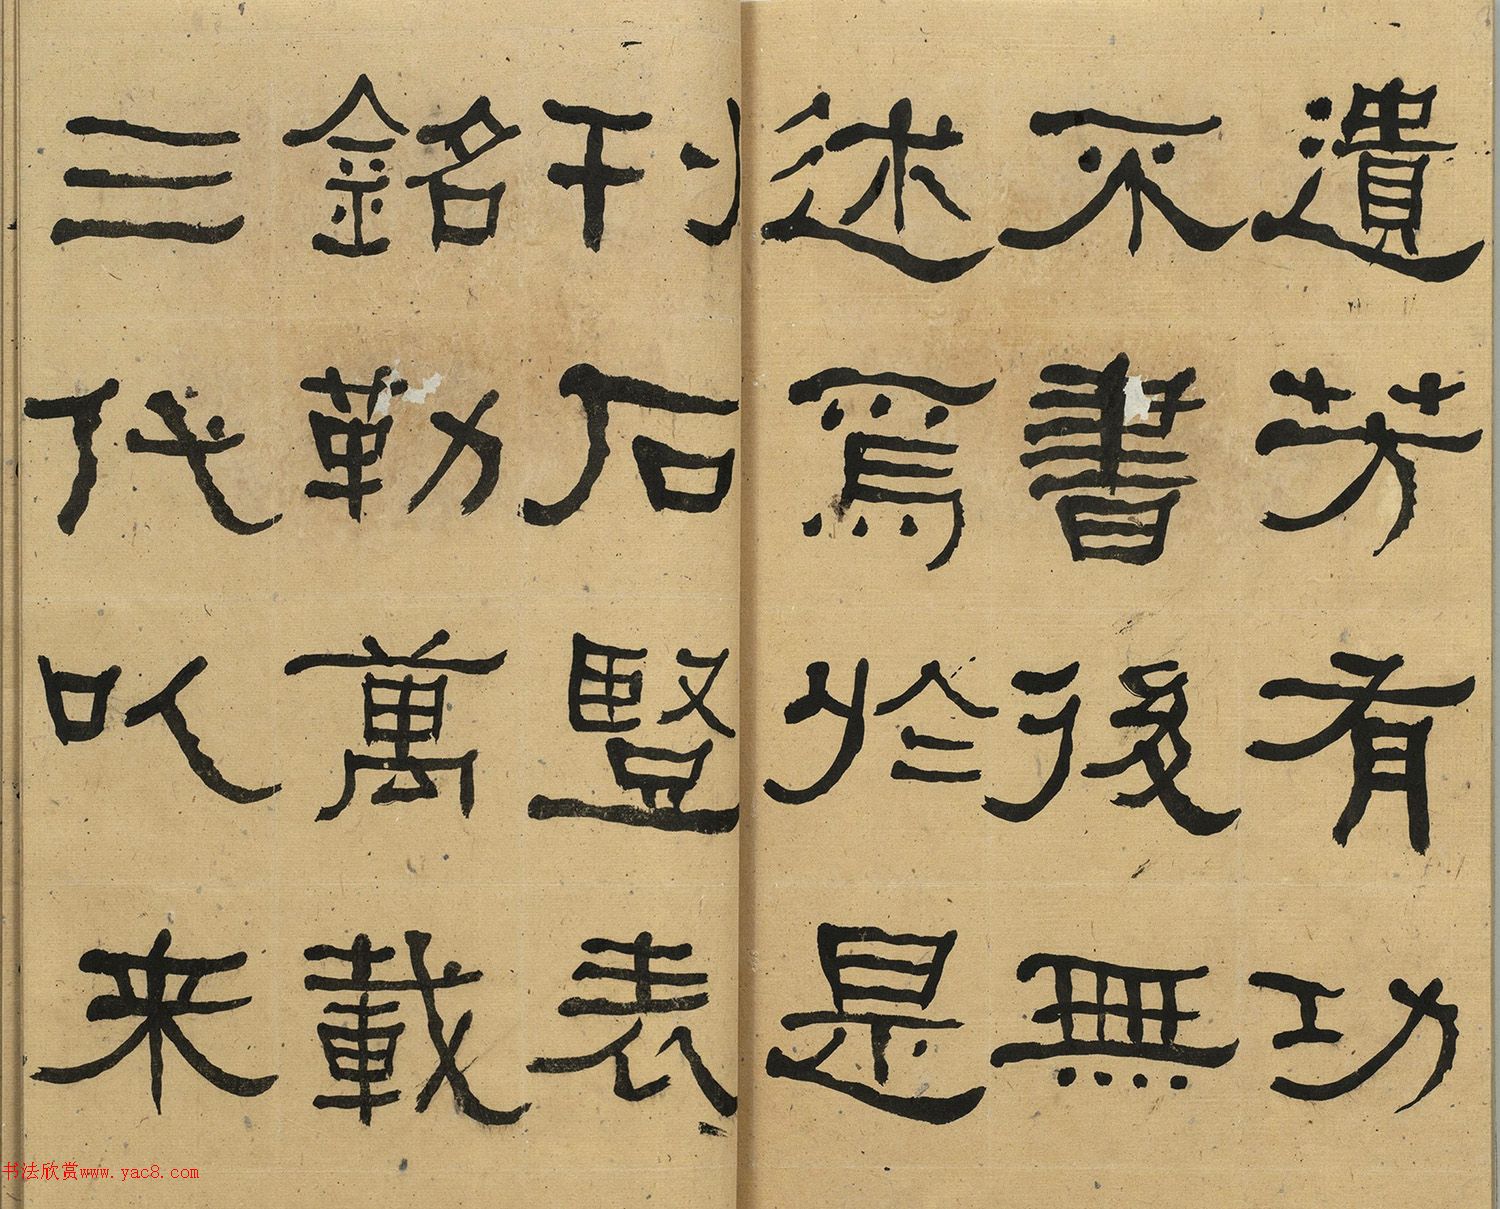 遺芳有功
不書後無
述焉於是
刊石豎表
銘勒萬載
三代以来
书法欣赏www.yac8.com